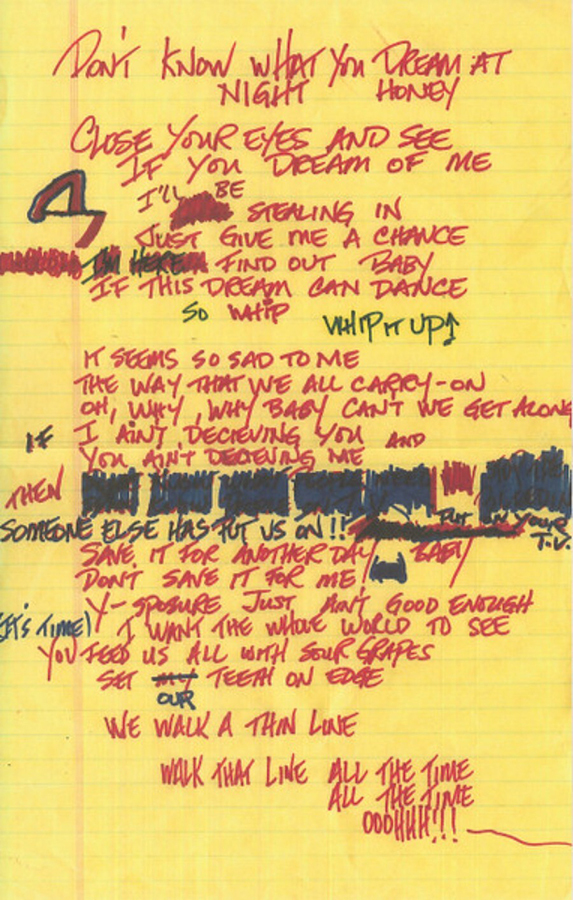 DON'T KNOW WHAT YOU DREAM AT
NIGHT HONEY
CLOSE YOUR EYES AND SEE
IF YOU DREAM OF ME
I'LL BE
STEALING IN
JUST GIVE ME A CHANCE
I'M HERE FIND OUT BABY
IF THIS DREAM CAN DANCE
SO WHIP WHIP IT UP
IT SEEMS SO SAD TO ME
THE WAY THAT WE ALL CARRY-ON
OH, WHY, WHY BABY CAN'T WE GET ALONG
IF I AIN'T DECIEVING YOU AND
YOU AIN'T DECIEVING ME
THEN
SOMEONE ELSE HAS PUT US ON!! PUT IN YOUR
T.V.
SAVE IT FOR ANOTHER DAY BABY
DON'T SAVE IT FOR ME!
X-SPOSURE JUST AIN'T GOOD ENOUGH
(IT'S TIME) I WANT THE WHOLE WORLD TO SEE
YOU FEED US ALL WITH SOUR GRAPES
SET MY TEETH ON EDGE
OUR
WE WALK A THIN LINE
WALK THAT LINE ALL THE TIME
ALL THE TIME
OOOHHH!!!